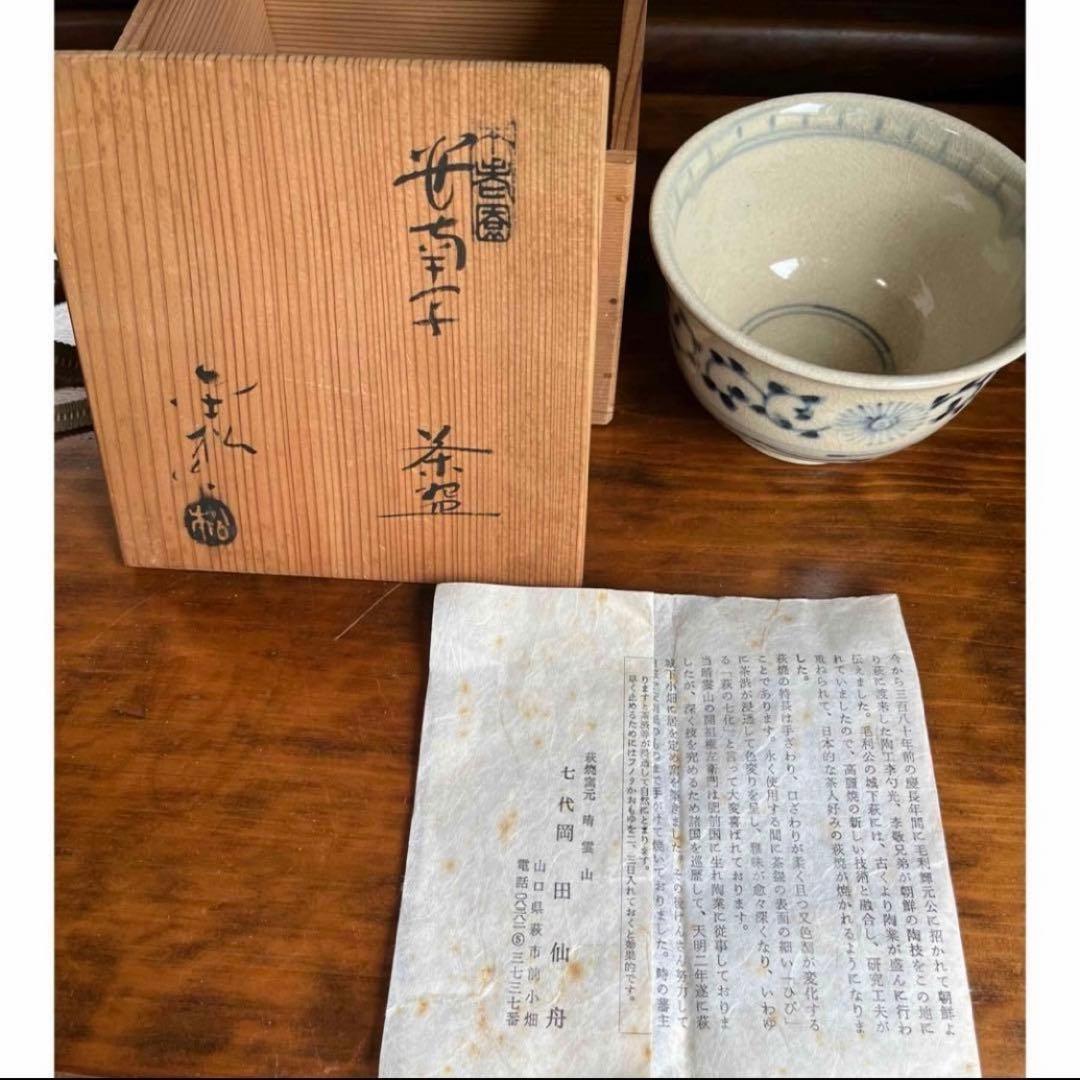 茶盌
松
今から三百八十年前の慶長年間に毛利輝元公に招かれて朝鮮よ
り萩に渡来した陶工李勺光、李敬兄弟が朝鮮の陶技をこの地に
伝えました。毛利公の城下萩には、古くより陶業が盛んに行わ
れていましたので、高麗焼の新しい技術と融合し、研究工夫が
重ねられて、日本的な茶人好みの萩焼が焼かれるようになりま
した。
萩焼の特長は手ざわり、口ざわりが柔く且つ又色調が変化する
ことであります。永く使用する間に茶碗の表面の細い「ひび」
に茶渋が浸透して色変りを呈し、雅味が愈々深くなり、いわゆ
る「萩の七化」と言って大変喜ばれております。
当晴雲山の開祖権左衛門は肥前国に生れ陶業に従事しておりま
したが、深く技を究めるため諸国を巡歴して、天明二年遂に萩
城下小畑に居を定め窯を築きました。その後けんさん努力して
まで手がけて焼いておりました。時の藩主
りますと茶渋等が浸透して自然にとまります。
早く止めるためにはフノリかおもゆを二、三日入れておくと効果的です。
萩焼窯元 晴雲山
七代岡田仙舟
山口県萩市前小畑
電話〇八三八二㊄三七三七番